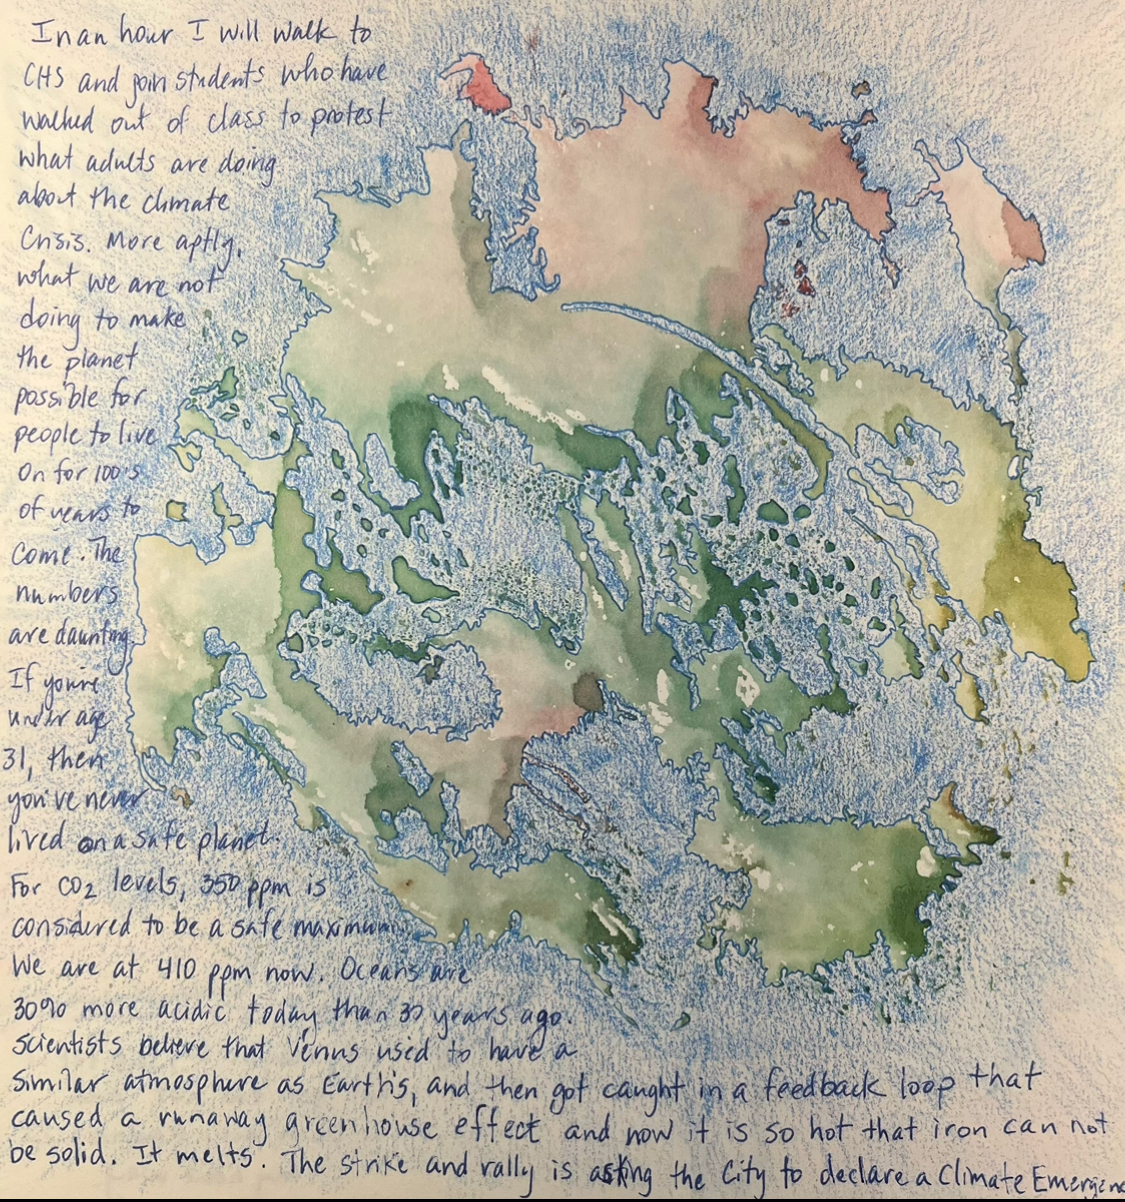 In an hour I will walk to
CHS and join students who have
walked out of class to protest
what adults are doing
about the climate
Crisis. More aptly,
what we are not
doing to make
the planet
possible for
people to live
on for 100's
of years to
come. The
numbers
are daunting.
If you're
under age
31, then
you've never
lived on a safe planet.
For CO2 levels, 350 ppm is
considered to be a safe maximum.
We are at 410 ppm now. Oceans are
30% more acidic today than 30 years ago.
Scientists believe that Venus used to have a
similar atmosphere as Earth's, and then got caught in a feedback loop that
caused a runaway greenhouse effect and now it is so hot that iron can not
be solid. It melts. The strike and rally is asking the City to declare a Climate Emergenc